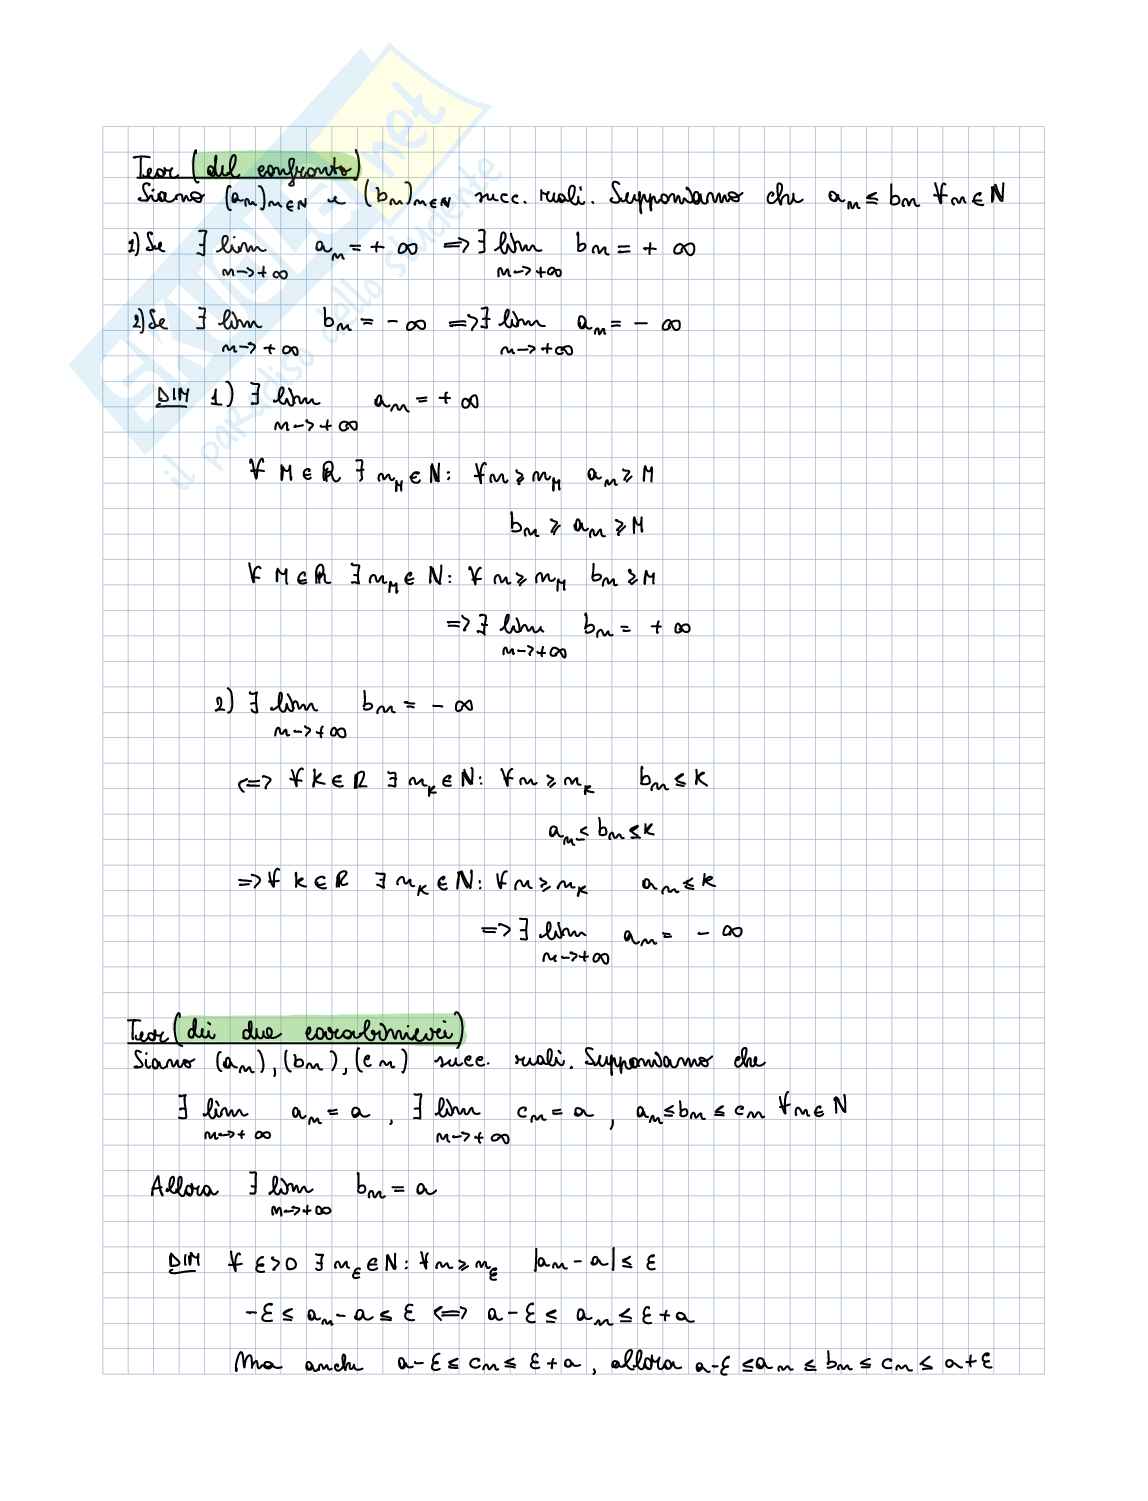 SKUOLA.net
il paradiso dello studente
Teor (del confronto)
Siano (an)n∈N e (bn)n∈N succ. reali. Supponiamo che an ≤ bn ∀n∈N
1) Se ∃ lim an = + ∞ => ∃ lim bn = + ∞
n->+∞ n->+∞
2) Se ∃ lim bn = - ∞ => ∃ lim an = - ∞
n->+∞ n->+∞
DIM 1) ∃ lim an = + ∞
n->+∞
∀ M ∈ R ∃ nM ∈ N: ∀n ≥ nM an ≥ M
bn ≥ an ≥ M
∀ M ∈ R ∃ nM ∈ N: ∀ n ≥ nM bn ≥ M
=> ∃ lim bn = + ∞
n->+∞
2) ∃ lim bn = - ∞
n->+∞
<=> ∀ K ∈ R ∃ nK ∈ N: ∀n ≥ nK bn ≤ K
an ≤ bn ≤ K
=> ∀ K ∈ R ∃ nK ∈ N: ∀n ≥ nK an ≤ K
=> ∃ lim an = - ∞
n->+∞
Teor (dei due carabinieri)
Siano (an), (bn), (cn) succ. reali. Supponiamo che
∃ lim an = a , ∃ lim cn = a , an ≤ bn ≤ cn ∀n∈N
n->+∞ n->+∞
Allora ∃ lim bn = a
n->+∞
DIM ∀ ε>0 ∃ nε ∈ N: ∀n ≥ nε |an - a| ≤ ε
-ε ≤ an - a ≤ ε <=> a - ε ≤ an ≤ ε + a
Ma anche a - ε ≤ cn ≤ ε + a, allora a - ε ≤ an ≤ bn ≤ cn ≤ a + ε